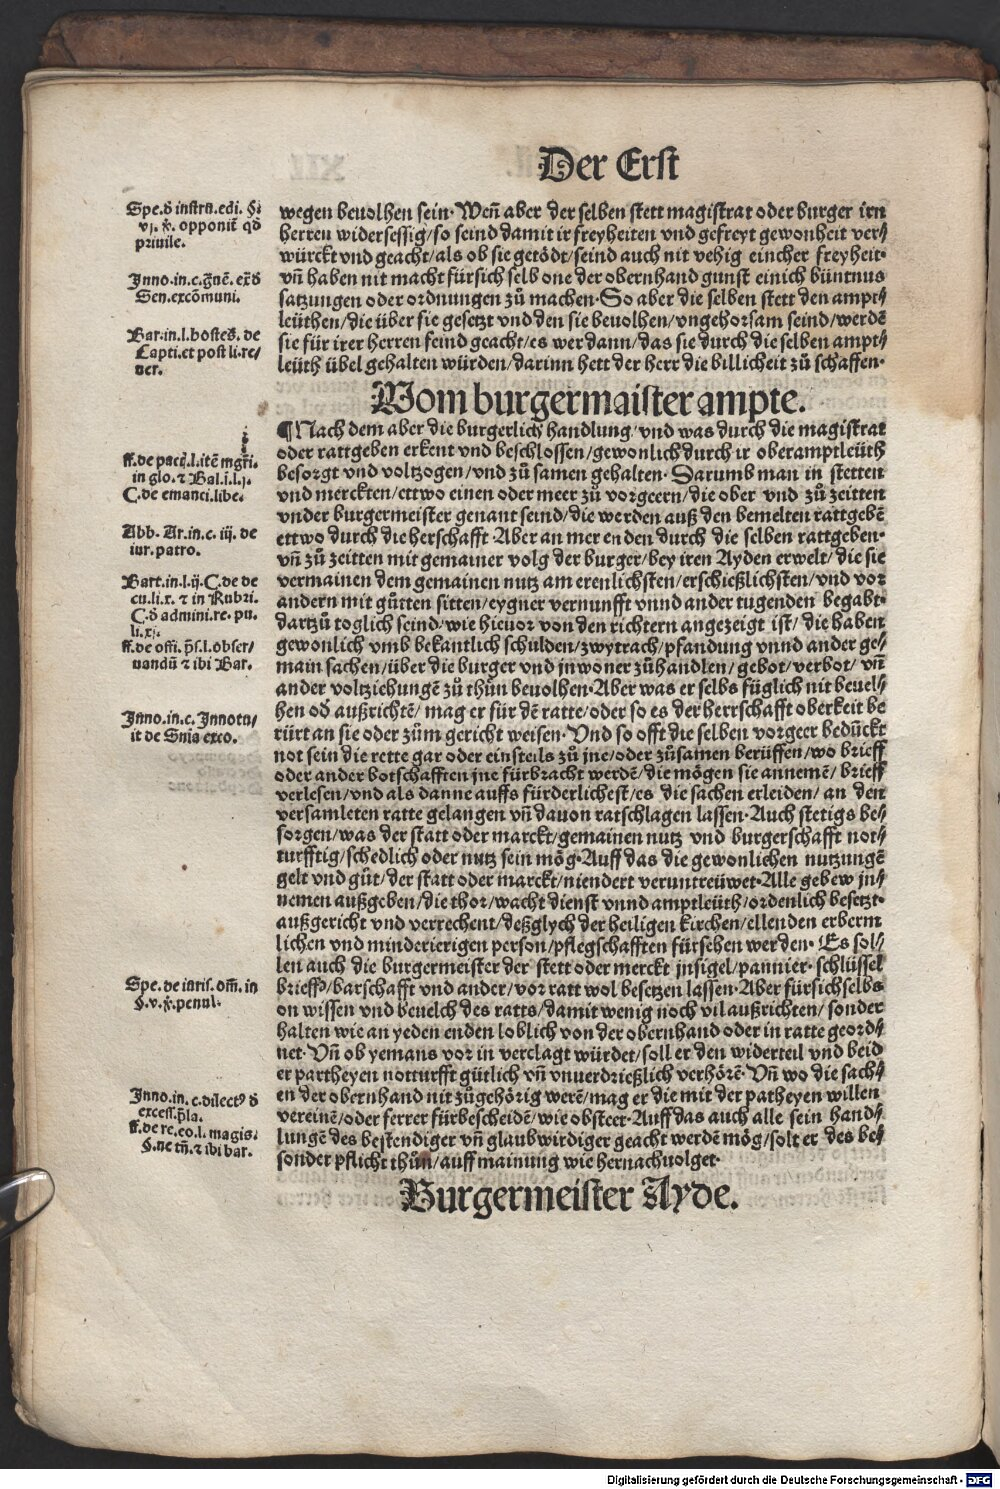 Der Erst
Spe.đ instru.edi. §i
vj. ꝟ. opponit̃ qđ
priuile.
Inno.in.c.g̃nẽ. exđ
Sen.excõmuni.
Bar.in.l.hostes. de
Capti.et post li.re/
uer.
wegen beuolhen sein· Weñ aber der selben stett magistrat oder burger irn
herren widersessig/so seind damit ir freyheiten vnd gefreyt gewonheit ver⸗
würckt vnd geacht/als ob sie getödt/seind auch nit vehig eincher freyheit·
vñ haben nit macht fürsich selb one der obernhand gunst einich büntnus
satzungen oder ordnungen zů machen·So aber die selben stett den ampt⸗
leüthen/die über sie gesetzt vnd den sie beuolhen/vngehorsam seind/werdẽ
sie für irer herren feind geacht/es wer dann/das sie durch die selben ampt⸗
leüth übel gehalten würden/darinn hett der herr die billicheit zů schaffen·
Vom burgermaister ampte.
ff.de pact̃.l.itẽ mgr̃i.
in glo.⁊ Bal.i.l.j.
C.de emanci.libe.
Abb. Ar.in.c. iij. de
iur. patro.
Bart.in.l.ij.C.de de
cu.li.x. ⁊ in Rubri.
C.đ admini.re. pu.
li.xj.
ff.de offi. p̃s.l.obser/
uandũ ⁊ ibi Bar.
Inno.in.c. Innotu/
it de Snia exco.
¶Nach dem aber die burgerlich handlung/vnd was durch die magistrat
oder rattgeben erkent vnd beschlossen/gewonlich durch ir oberamptleüth
besorgt vnd voltzogen/vnd zů samen gehalten· Darumb man in stetten
vnd merckten/ettwo einen oder meer zů vorgeern/die ober vnd zů zeitten
vnder burgermeister genant seind/die werden auß den bemelten rattgebẽ
ettwo durch die herschafft·Aber an mer enden durch die selben rattgeben·
vñ zů zeitten mit gemainer volg der burger/bey iren Ayden erwelt/die sie
vermainen dem gemainen nutz am erenlichsten/erschießlichsten/vnd vor
andern mit gůtten sitten/eygner vernunfft vnnd ander tugenden begabt·
dartzů toglich seind/wie hieuor von den richtern angezeigt ist/die haben
gewonlich vmb bekantlich schulden/zwytrach/pfandung vnnd ander ge⸗
main sachen/über die burger vnd jnwoner zůhandlen/gebot/verbot/vñ
ander voltziehungẽ zů thůn beuolhen·Aber was er selbs füglich nit beuel⸗
hen ođ außrichtẽ/ mag er für dẽ ratte/oder so es der herrschafft oberkeit be
rürt an sie oder zům gericht weisen·Vnd so offt die selben vorgeer bedückt
not sein die rette gar oder einsteils zů jne/oder zůsamen berüffen/wo brieff
oder ander botschafften jne fürbracht werdẽ/die mögen sie annemẽ/ brieff
verlesen/vnd als danne auffs fürderlichest/es die sachen erleiden/ an den
versamleten ratte gelangen vñ dauon ratschlagen lassen·Auch stetigs be⸗
sorgen/was der statt oder marckt/gemainen nutz vnd burgerschafft not⸗
turfftig/schedlich oder nutz sein mög·Auff das die gewonlichen nutzungẽ
gelt vnd gůt/der statt oder marckt/niendert veruntreüwet·Alle gebew jn⸗
nemen außgeben/die thor/wacht dienst vnnd amptleüth/ordenlich besetzt·
außgericht vnd verrechent/deßglych der heiligen kirchen/ellenden erberm
lichen vnd minderierigen person/pflegschafften fürsehen werden· Es sol⸗
len auch die burgermeister der stett oder merckt jnsigel/pannier· schlüssel
brieff/barschafft vnd ander/vor ratt wol besetzen lassen·Aber fürsichselbs
on wissen vnd beuelch des ratts/damit wenig noch vil außrichten/ sonder
halten wie an yeden enden loblich von der obernhand oder in ratte geord⸗
net·Vñ ob yemans vor in verclagt würdet/soll er den widerteil vnd beid
er partheyen notturfft gütlich vñ vnuerdrießlich verhörẽ·Vñ wo die sach⸗
en der obernhand nit zůgehörig werẽ/mag er die mit der patheyen willen
vereinẽ/oder ferrer fürbescheidẽ/wie obsteer·Auff das auch alle sein hand⸗
lungẽ des bestendiger vñ glaubwirdiger geacht werdẽ mög/solt er des be⸗
sonder pflicht thůn/auff mainung wie hernachuolget·
Spe. de iuris. om̃. in
§.v.ꝟ.penul.
Inno.in.c.dilectꝰ đ
excess.p̃la.
ff.de re.eo.l. magis.
§.ne tñ.⁊ ibi bar.
Burgermeister Ayde.
Digitalisierung gefördert durch die Deutsche Forschungsgemeinschaft - DFG